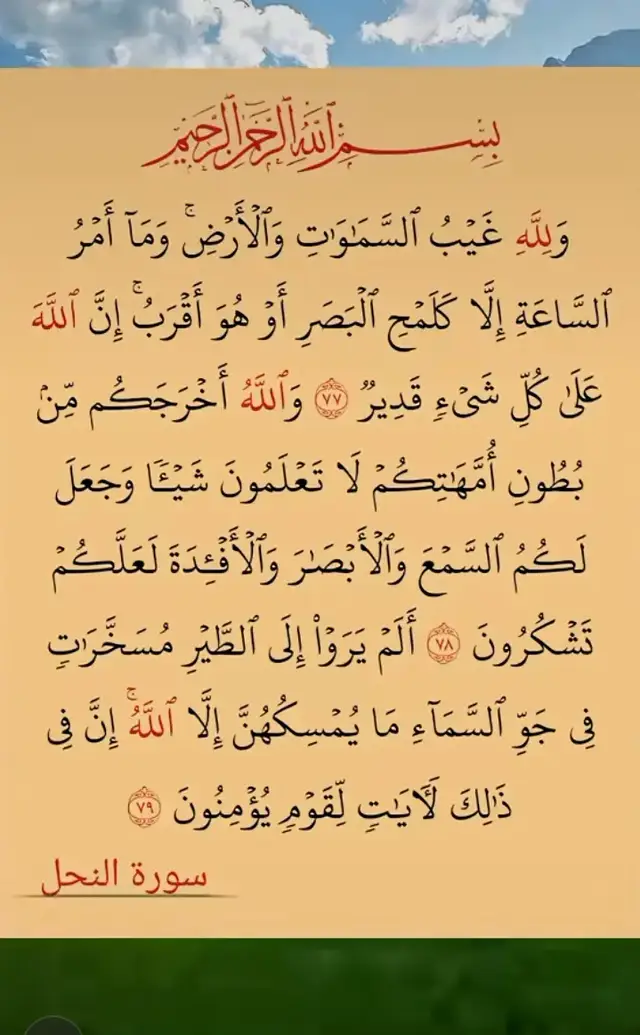 بِسۡمِ ٱللَّهِ ٱلرَّحۡمَٰنِ ٱلرَّحِيمِ
وَلِلَّهِ غَيۡبُ ٱلسَّمَٰوَٰتِ وَٱلۡأَرۡضِۚ وَمَآ أَمۡرُ
ٱلسَّاعَةِ إِلَّا كَلَمۡحِ ٱلۡبَصَرِ أَوۡ هُوَ أَقۡرَبُۚ إِنَّ ٱللَّهَ
عَلَىٰ كُلِّ شَيۡءٖ قَدِيرٞ ٧٧ وَٱللَّهُ أَخۡرَجَكُم مِّنۢ
بُطُونِ أُمَّهَٰتِكُمۡ لَا تَعۡلَمُونَ شَيۡـٔٗا وَجَعَلَ
لَكُمُ ٱلسَّمۡعَ وَٱلۡأَبۡصَٰرَ وَٱلۡأَفۡـِٔدَةَ لَعَلَّكُمۡ
تَشۡكُرُونَ ٧٨ أَلَمۡ يَرَوۡاْ إِلَى ٱلطَّيۡرِ مُسَخَّرَٰتٖ
فِي جَوِّ ٱلسَّمَآءِ مَا يُمۡسِكُهُنَّ إِلَّا ٱللَّهُۚ إِنَّ فِي
ذَٰلِكَ لَأٓيَٰتٖ لِّقَوۡمٖ يُؤۡمِنُونَ ٧٩
سورة النحل